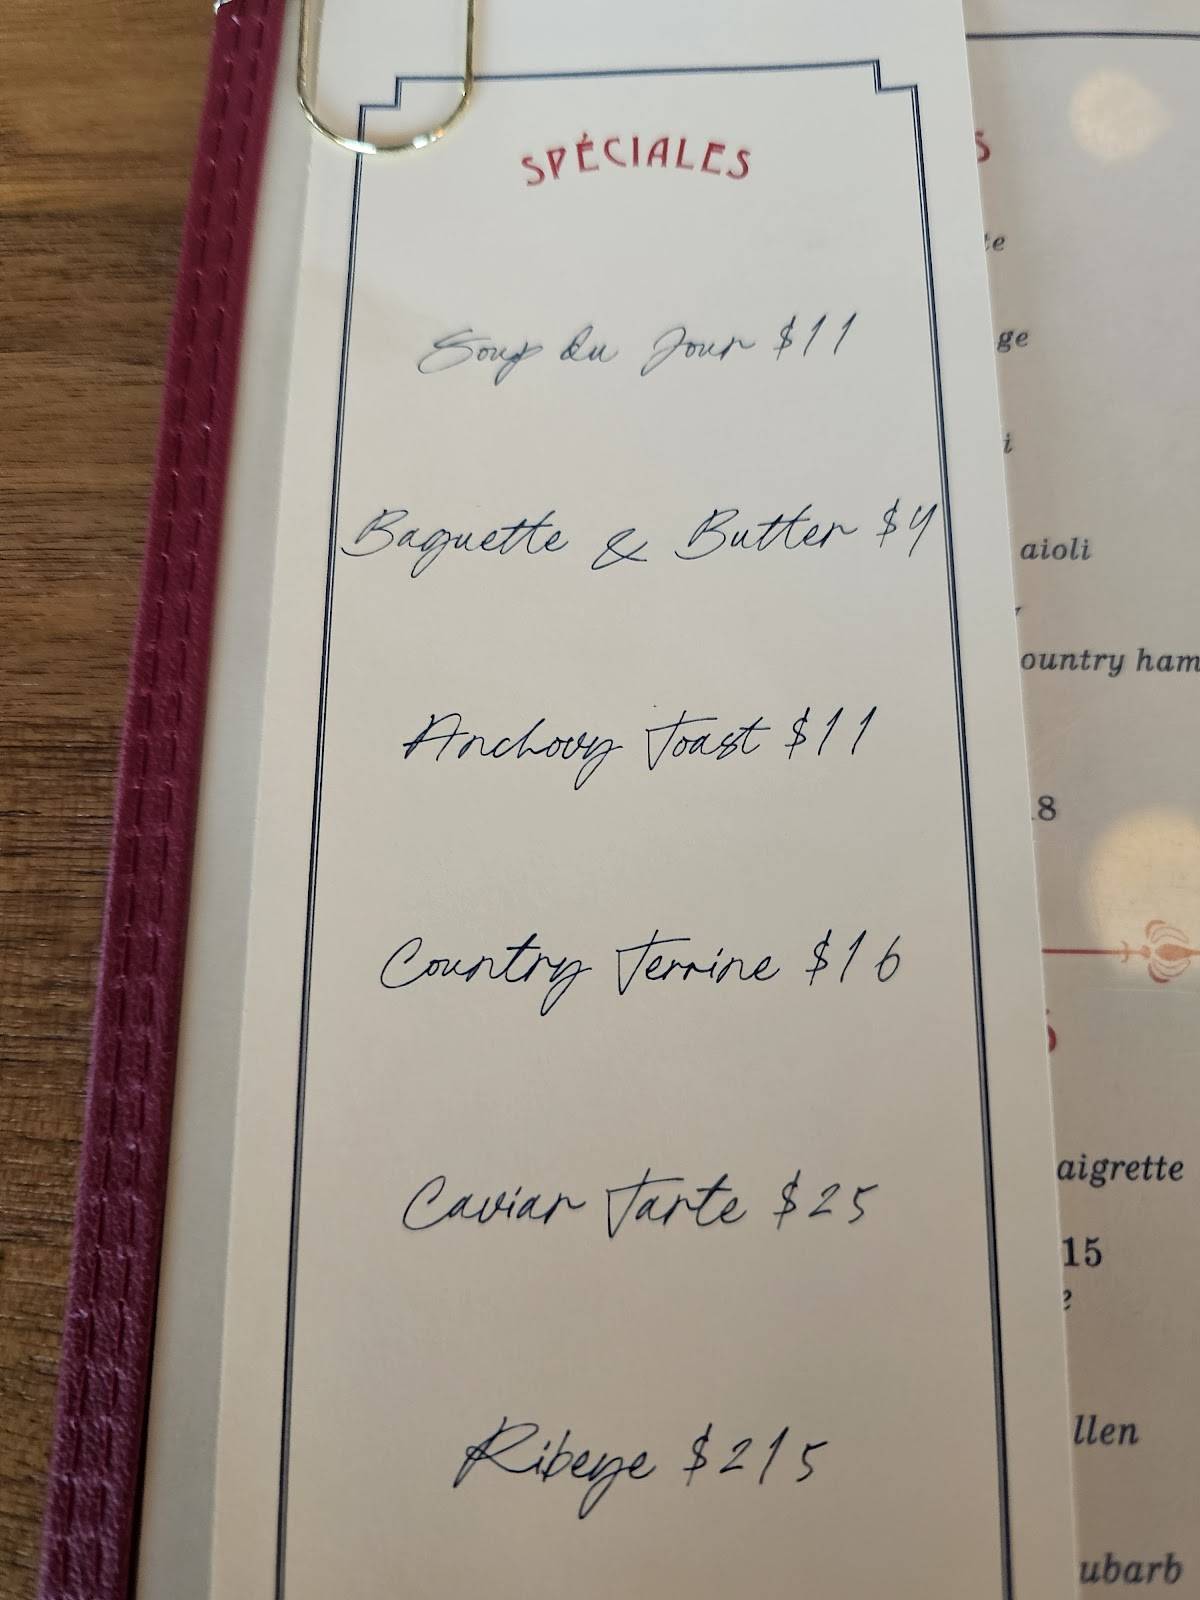 SPÉCIALES
Soup du Jour $11
Baguette & Butter $4
Anchovy Toast $11
Country Terrine $16
Caviar Tarte $25
Ribeye $215
s
te
ge
i
aioli
ountry ham
8
aigrette
15
e
llen
ubarb